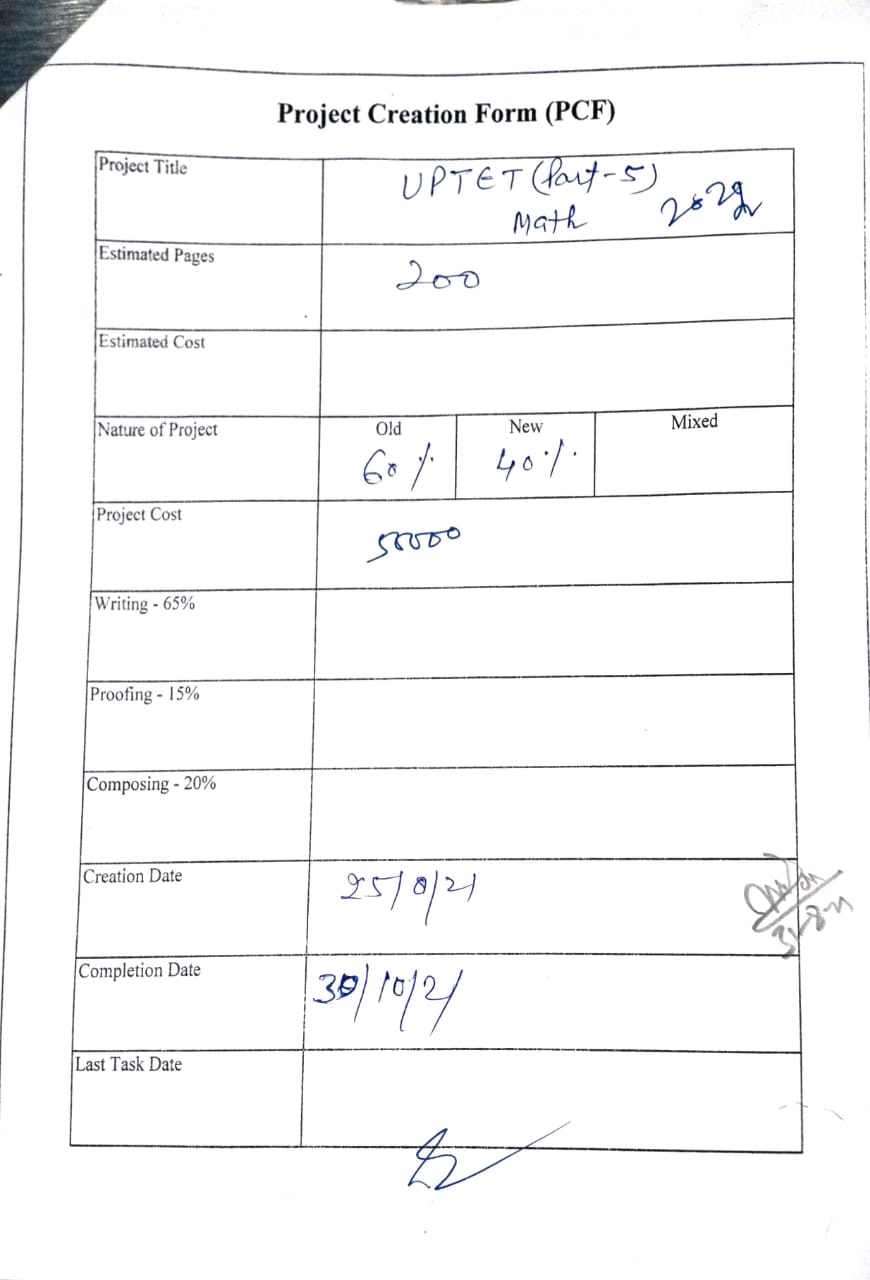 Project Creation Form (PCF)
Project Title
UPTET (Part-5)
Math
Estimated Pages
200
Estimated Cost
Nature of Project Old New Mixed
60 % 40 %
Project Cost
50000
Writing - 65%
Proofing - 15%
Composing - 20%
Creation Date
25/8/21
Completion Date
30/10/21
Last Task Date